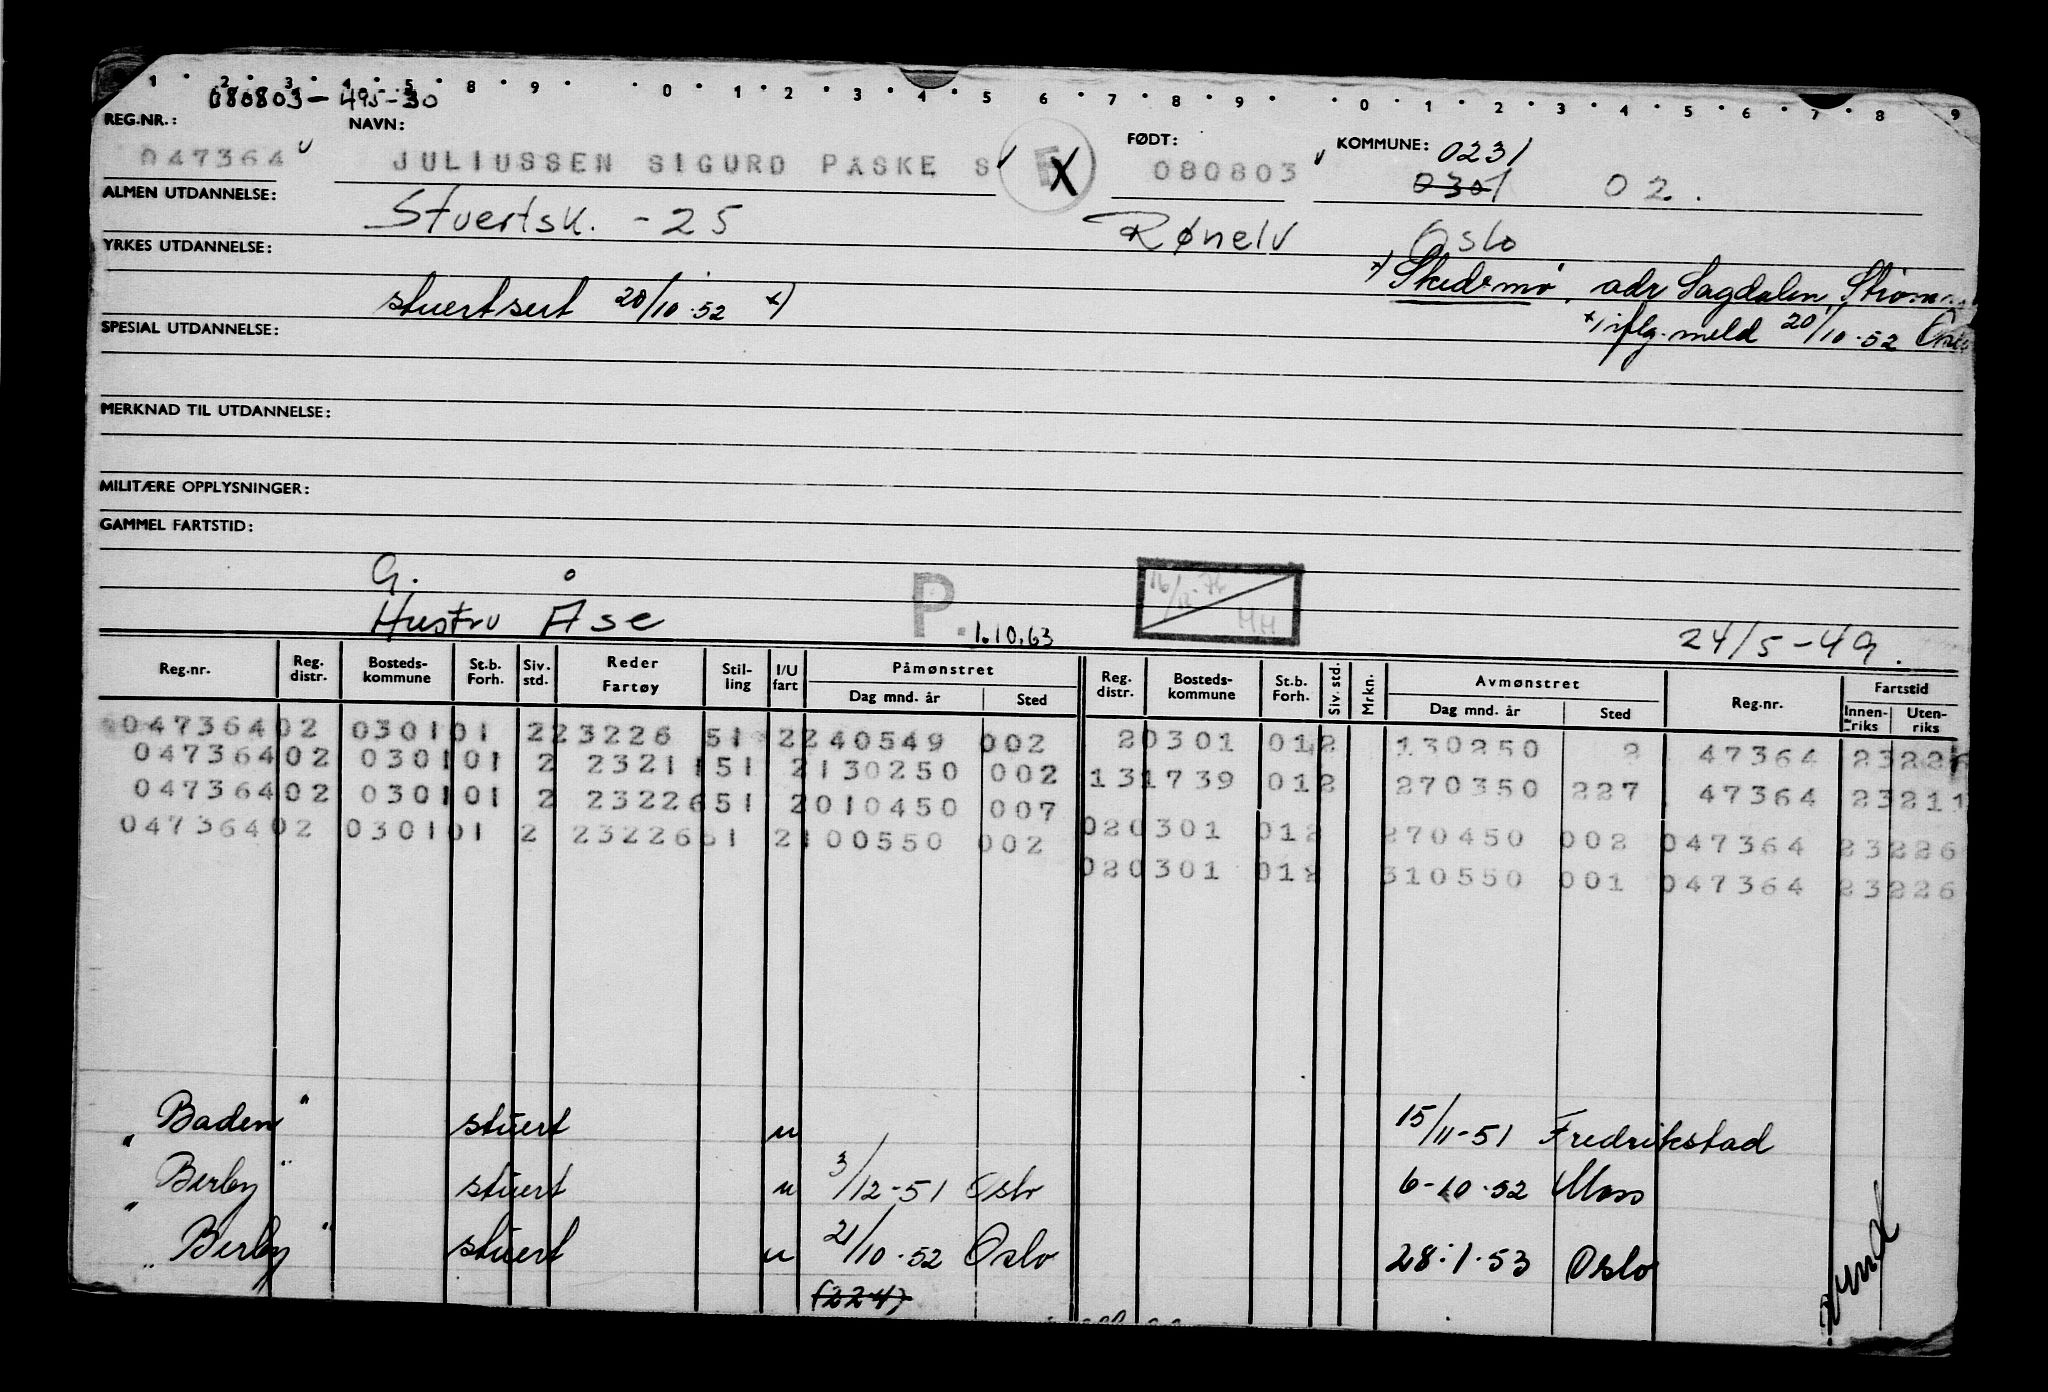 1 2 3 4 5 8 9 0 1 2 3 4 5 6 7 8 9 0 1 2 3 4 5 6 7 8 9
080803-495-30
REG.NR.: NAVN: FØDT: KOMMUNE: 0231
047364 JULIUSSEN SIGURD PASKE S X 080803 0301 02.
ALMEN UTDANNELSE: Stuertsk. -25 Rønelv Oslo
YRKES UTDANNELSE:
x) Skedsmo, adr Sagdalen,
stuertsert 20/10.52 x)
x) iflg. meld 20/10.52
SPESIAL UTDANNELSE:
MERKNAD TIL UTDANNELSE:
MILITÆRE OPPLYSNINGER:
GAMMEL FARTSTID:
G.
Hustru Åse P. 1.10.63 HH 24/5-49.
Reg.nr. Reg. distr. Bosteds-kommune St.b. Forh. Siv. std. Reder Fartøy Stil-ling I/U fart Påmønstret Dag mnd. år Sted Reg. distr. Bosteds-kommune St.b. Forh. Siv. std. Mrkn. Avmønstret Dag mnd. år Sted Reg.nr. Fartstid Innen-riks Uten-riks
047364 02 0301 01 2 23226 51 2 240549 002 20301 012 130250 2 47364 23226
047364 02 0301 01 2 23211 51 2 130250 002 131739 012 270350 227 47364 23211
047364 02 0301 01 2 23226 51 2 010450 007 020301 012 270450 002 047364 23226
047364 02 0301 01 2 23226 51 2 100550 002 020301 012 310550 001 047364 23226
"Baden" stuert u 15/11-51 Fredrikstad
"Berby" stuert u 3/12-51 Oslo 6-10.52 Moss
"Berby" stuert u 21/10.52 Oslo 28.1.53 Oslo
(224)